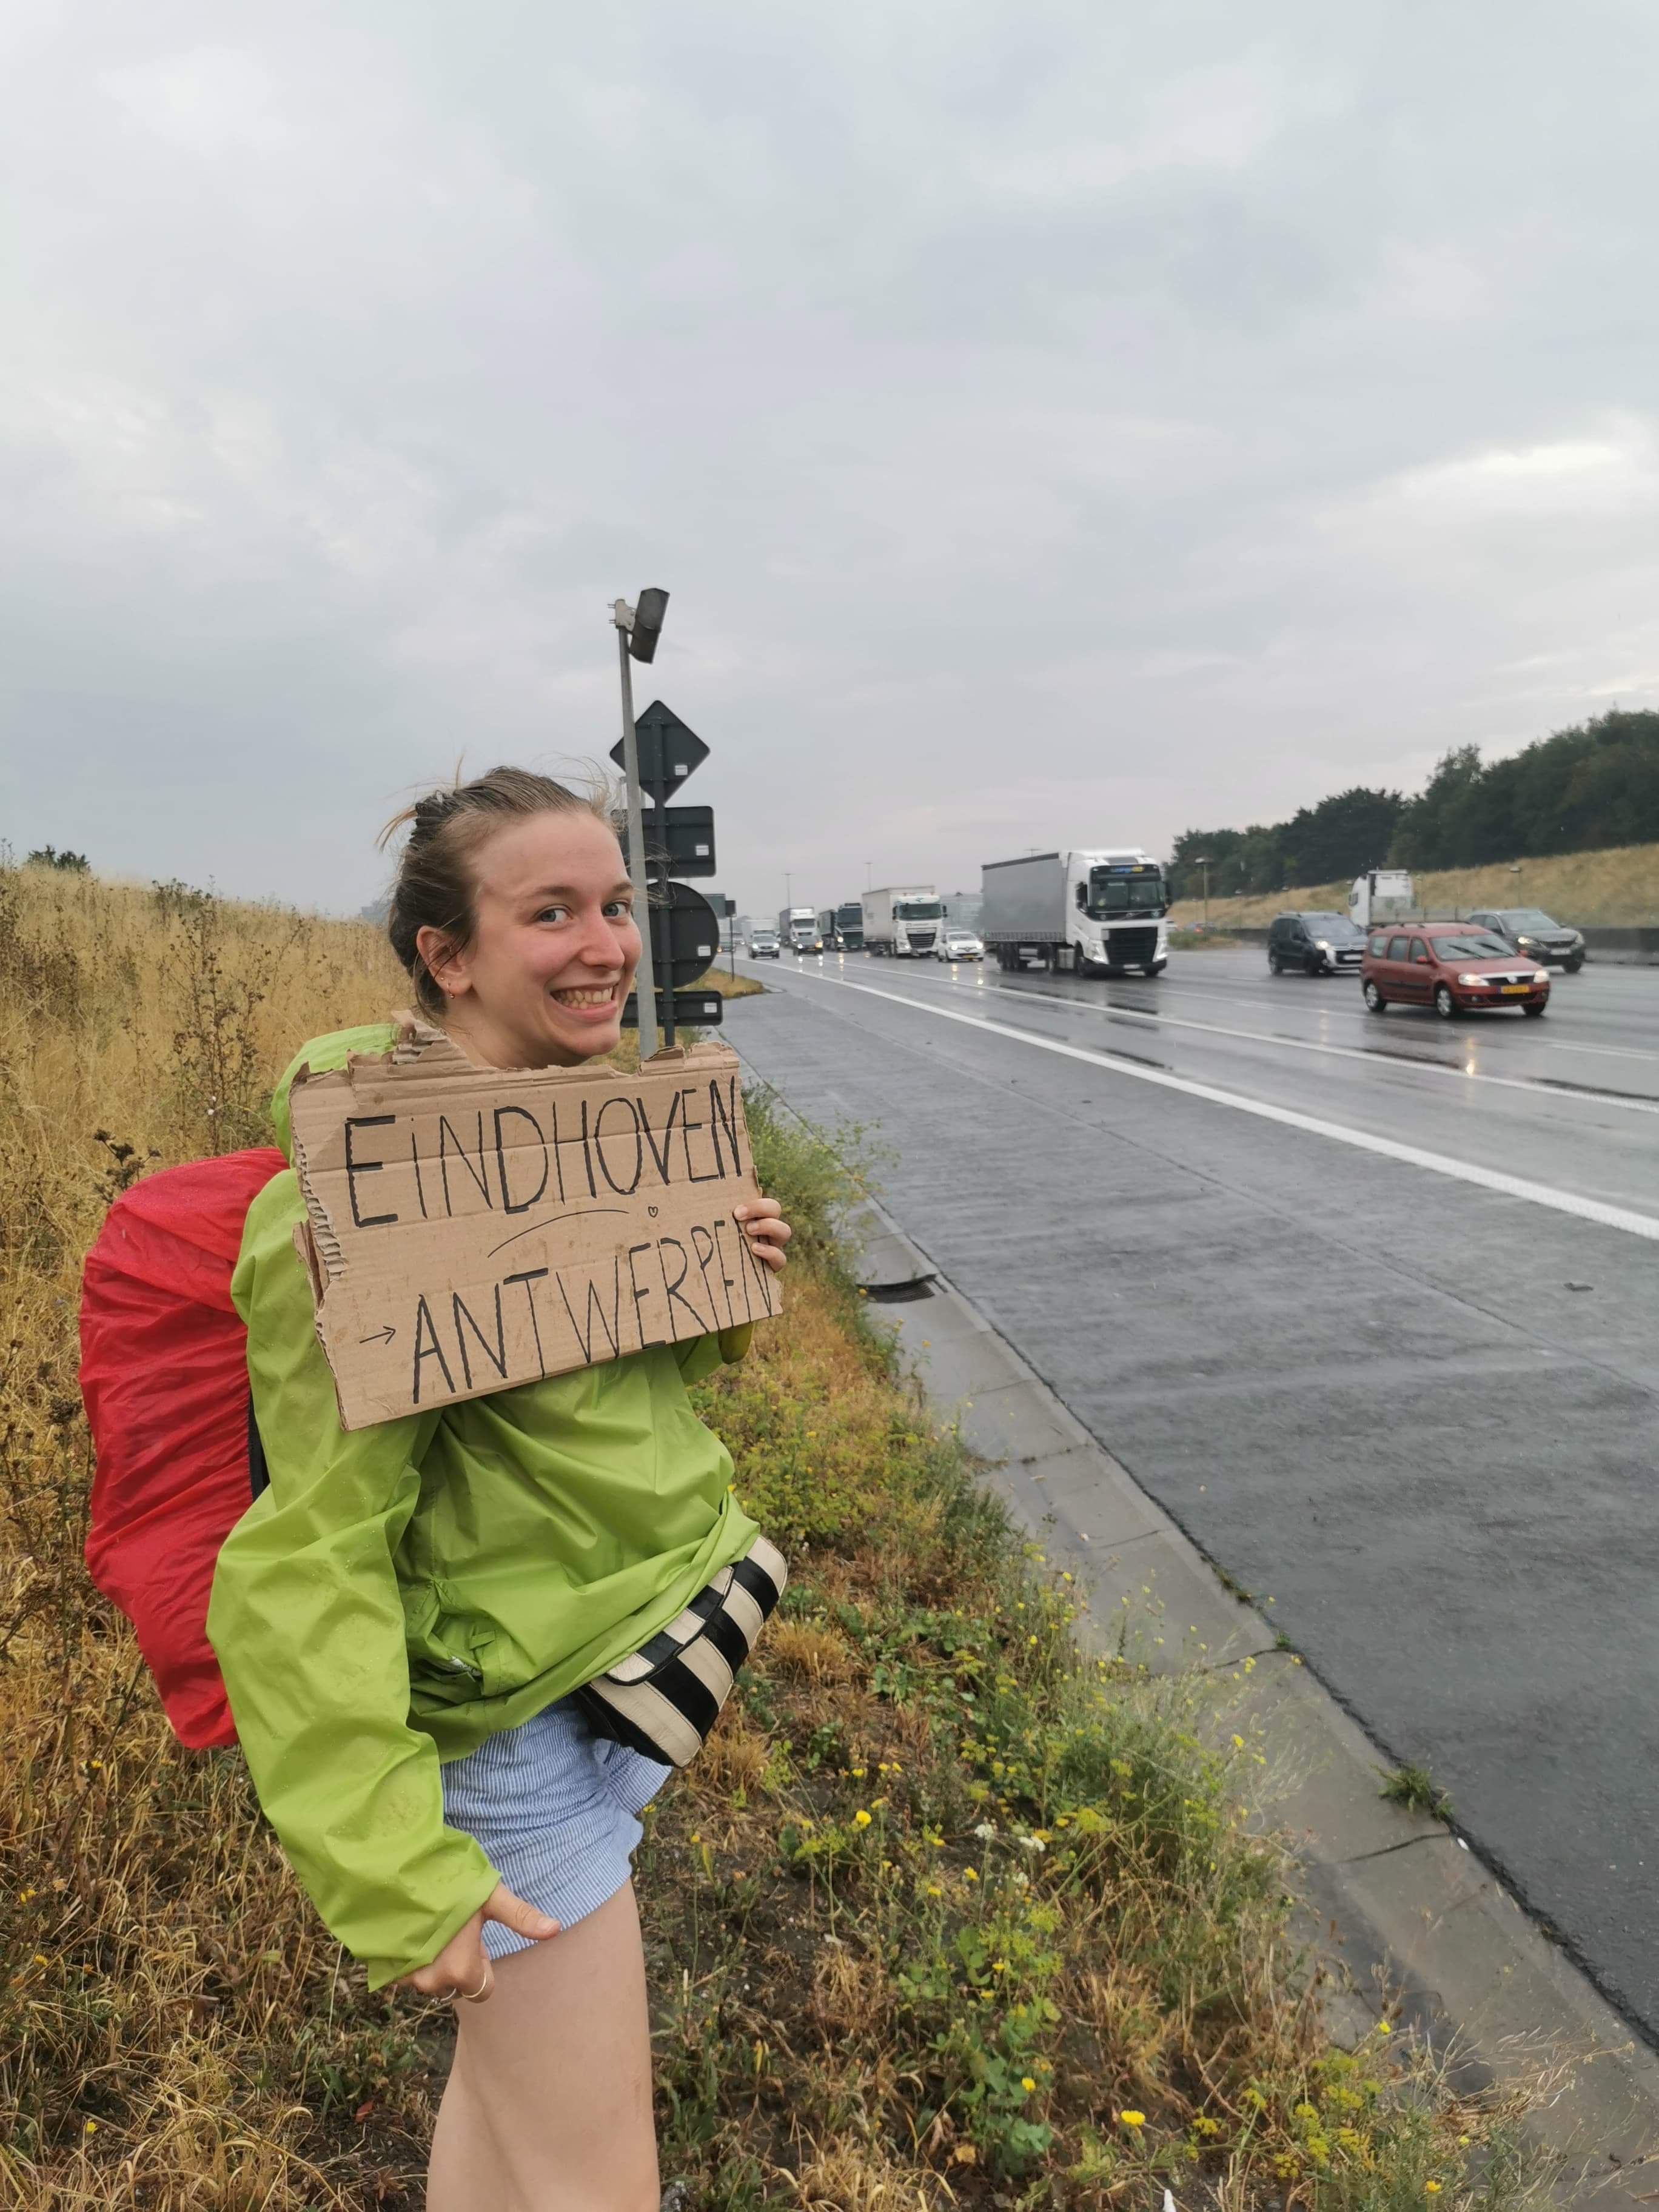 EiNDHOVEN
→ ANTWERPEN